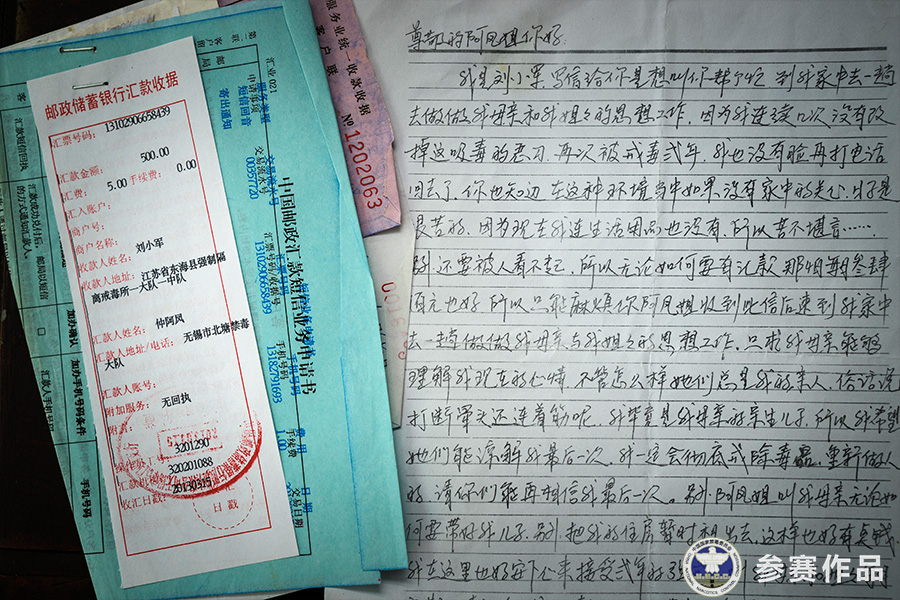 邮政储蓄银行汇款收据
汇票号码：13102906658439
汇款金额：500.00
汇费：5.00 手续费：0.00
汇入账户：
商户号：
商户名称：
收款人姓名：刘小军
收款人地址：江苏省东海县强制隔
离戒毒所一大队一中队
汇款人姓名：仲阿凤
汇款人地址/电话：无锡市北塘禁毒
大队
汇款人账号：
附加服务：无回执
附言：
3201290
320201088
收汇日期：20130315
日戳
汇款短信回执
汇款成功兑付后，
的方式通知汇款人。
加办确认
加办手机号码条件
手机号码
汇业 021
短信回音
寄出通知
00597720
中国邮政汇款短信业务申请书
13102906658439
手机号码
13182791693
手续费
交易日期
服务业统一收款收据
客户联
№ 1202063
尊敬的阿凤姐你好：
我是刘小军 写信给你是想叫你帮个忙 到我家中去一趟
去做做我母亲和我姐姐的思想工作，因为我连续几次没有改
掉这吸毒的恶习，再次被戒毒弍年，我也没有脸再打电话
回去了，你也知道 在这种环境当中如果没有家中的关心，才是
最苦的，因为现在我连生活用品也没有，所以苦不堪言……
别，还要被人看不起，所以无论如何要有汇款 那怕每月叁肆
百元也好，所以只能麻烦你阿凤姐收到此信后速到我家中
去一趟 做做我母亲与我姐姐的思想工作，只求我母亲能够
理解我现在的心情，不管怎么样她们总是我的亲人，俗话说
打断骨头还连着筋呢，我毕竟是我母亲的亲生儿子，所以我希望
她们能谅解我最后一次，我一定会彻底戒除毒瘾，重新做人
的，请你们能再相信我最后一次。别，阿凤姐叫我母亲无论如
何要带好我儿子，别，把我的住房暂时租出去，这样也好有点钱，
我在这里也好安下心来接受弍年的
参赛作品